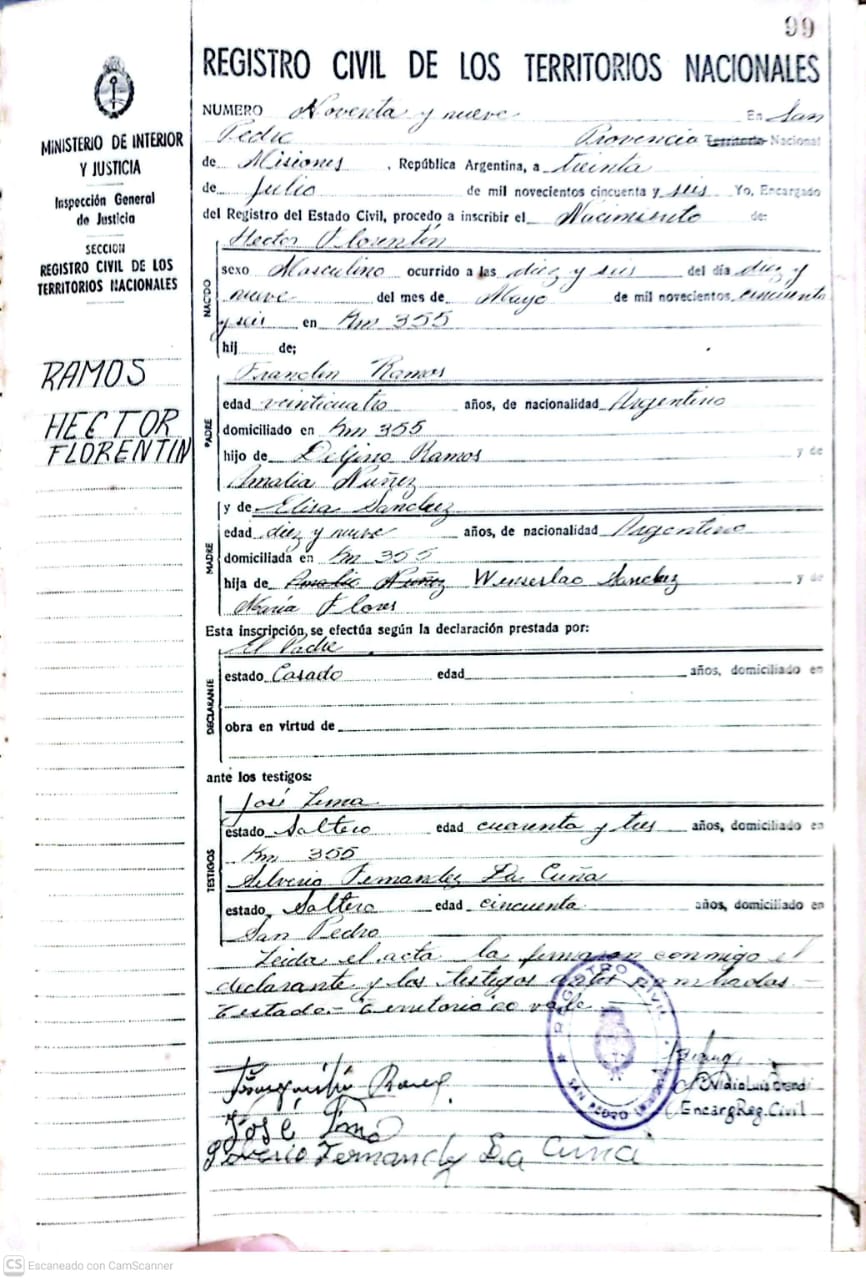 99
REGISTRO CIVIL DE LOS TERRITORIOS NACIONALES
MINISTERIO DE INTERIOR
Y JUSTICIA
Inspección General
de Justicia
SECCION
REGISTRO CIVIL DE LOS
TERRITORIOS NACIONALES
RAMOS
HECTOR
FLORENTIN
NUMERO Noventa y nueve En San
Pedro Provincia Territorio Nacional
de Misiones, República Argentina, a treinta
de Julio de mil novecientos cincuenta y seis Yo, Encargado
del Registro del Estado Civil, procedo a inscribir el Nacimiento de:
NACIDO
Hector Florentín
sexo Masculino ocurrido a las diez y seis del día diez y
nueve del mes de Mayo de mil novecientos cincuenta
y seis en Km 355
hij de;
PADRE
Ramos
edad veinticuatro años, de nacionalidad Argentino
domiciliado en Km 355
hijo de Delfino Ramos y de
Amalia Núñez
MADRE
y de Elisa Sanchez
edad diez y nueve años, de nacionalidad Argentino
domiciliada en Km 355
hija de Amalia Nuñez Wenserlao Sanchez y de
María Flores
Esta inscripción, se efectúa según la declaración prestada por:
DECLARANTE
El Padre
estado Casado edad años, domiciliado en
obra en virtud de
ante los testigos:
TESTIGOS
José Lima
estado Soltero edad cuarenta y tres años, domiciliado en
Km 355
Silverio Fernandez Da Cuña
estado Soltero edad cincuenta años, domiciliado en
San Pedro
Leida el acta la firmaron conmigo el
declarante y los testigos antes nombrados.-
Testado.- Territorio no vale.-
REGISTRO CIVIL
SAN PEDRO
Luis
Encarg Reg. Civil
José Lima
Silverio Fernandez Da Cuña
CS Escaneado con CamScanner